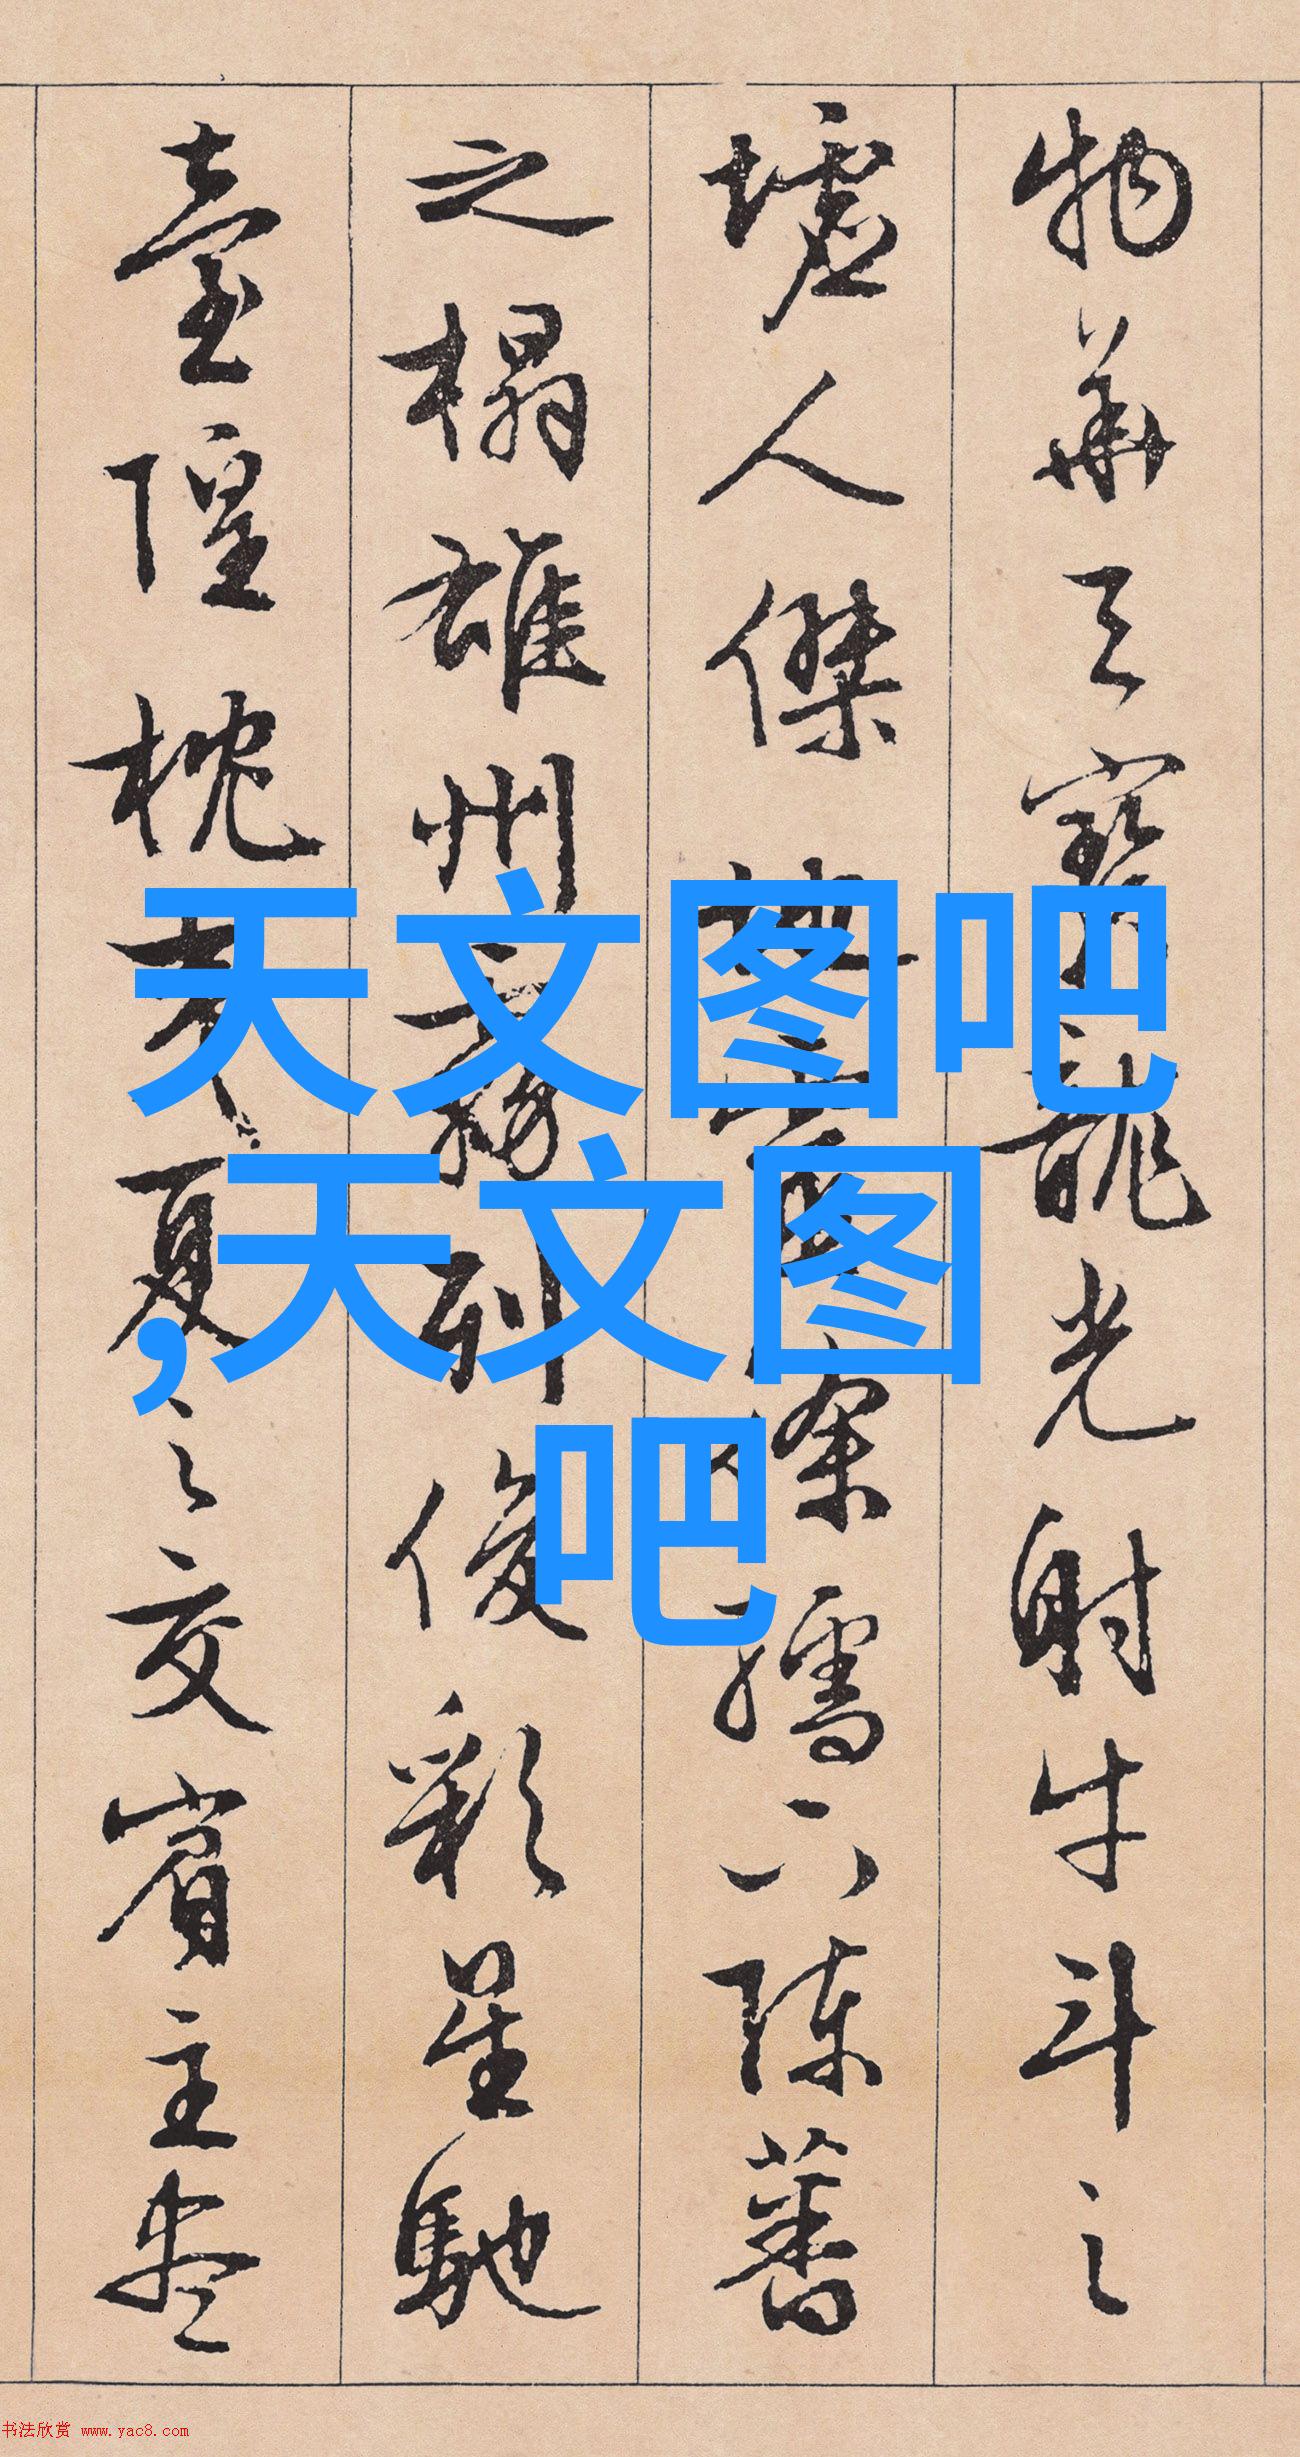 物華天寶龍光射牛斗之
墟人傑地靈徐孺下陳蕃
之榻雄州霧列俊彩星馳
臺隍枕夷夏之交賓主盡
天文图吧
,天文图
吧
书法欣赏 www.yac8.com